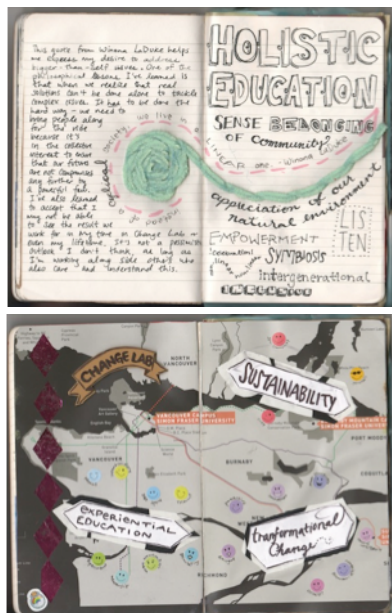 This quote from Winona LaDuke helps
me express my desire to address
bigger-than-self issues. One of the
philosophical lessons I've learned is
that when we realize that real
solutions can't be done alone to tackle
complex issues. It has to be done the
hard way - we need to
bring people along
for the ride
because it's
in the collective
interest to move
that our future
are not compromised
any further by
a powerful few.
I've also learned
to accept that I
may not be able
to see the result we
work for in my time in Change Lab or
even my lifetime. It's not a pessimistic
outlook I don't think, as long as
I'm working along side others who
also care and understand this.
instead of a cyclical society, we live in a LINEAR one. - Winona LaDuke
HOLISTIC
EDUCATION
SENSE BELONGING
OF Community?
appreciation of our
natural environment
LIS
TEN
EMPOWERMENT
SYMBIOSIS
Intergenerational
INCLUSIVE
CHANGE LAB
NORTH
VANCOUVER
SUSTAINABILITY
VANCOUVER CAMPUS
SIMON FRASER UNIVERSITY
SIMON FRASER UNIVE
PORT MOODY
VANCOUVER
BURNABY
COQUITL
experiential
EDUCATION
tranformational
Change
RICHMOND